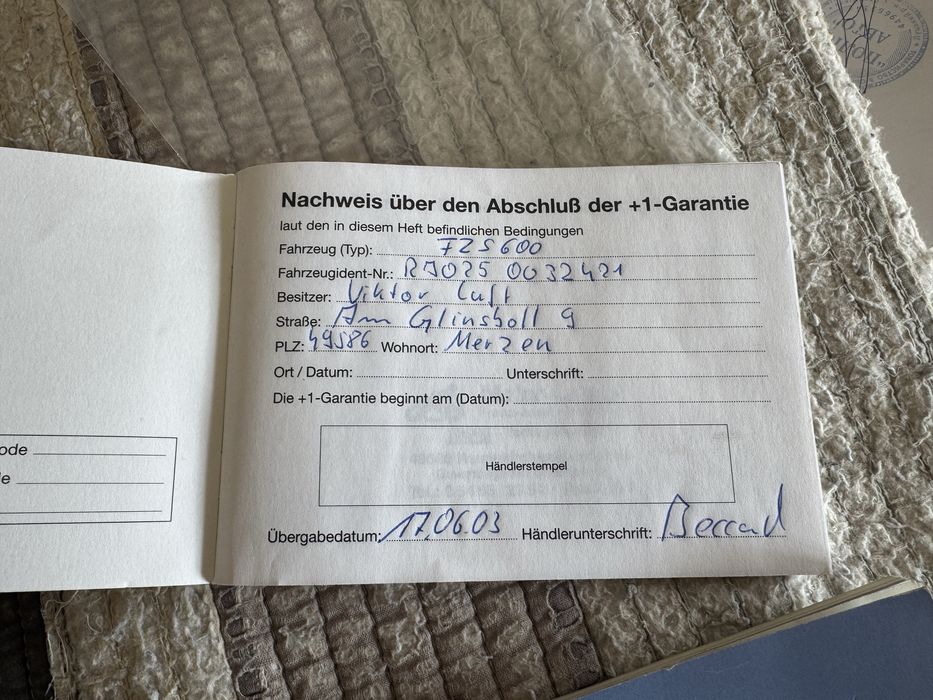 Nachweis über den Abschluß der +1-Garantie
laut den in diesem Heft befindlichen Bedingungen
Fahrzeug (Typ): FZS600
Fahrzeugident-Nr.: RJ025 0032421
Besitzer: Viktor Luft
Straße: Am Glinsboll 9
PLZ: 49586 Wohnort: Merzen
Ort / Datum: Unterschrift:
Die +1-Garantie beginnt am (Datum):
Händlerstempel
Übergabedatum: 17.06.03 Händlerunterschrift:
ode
e